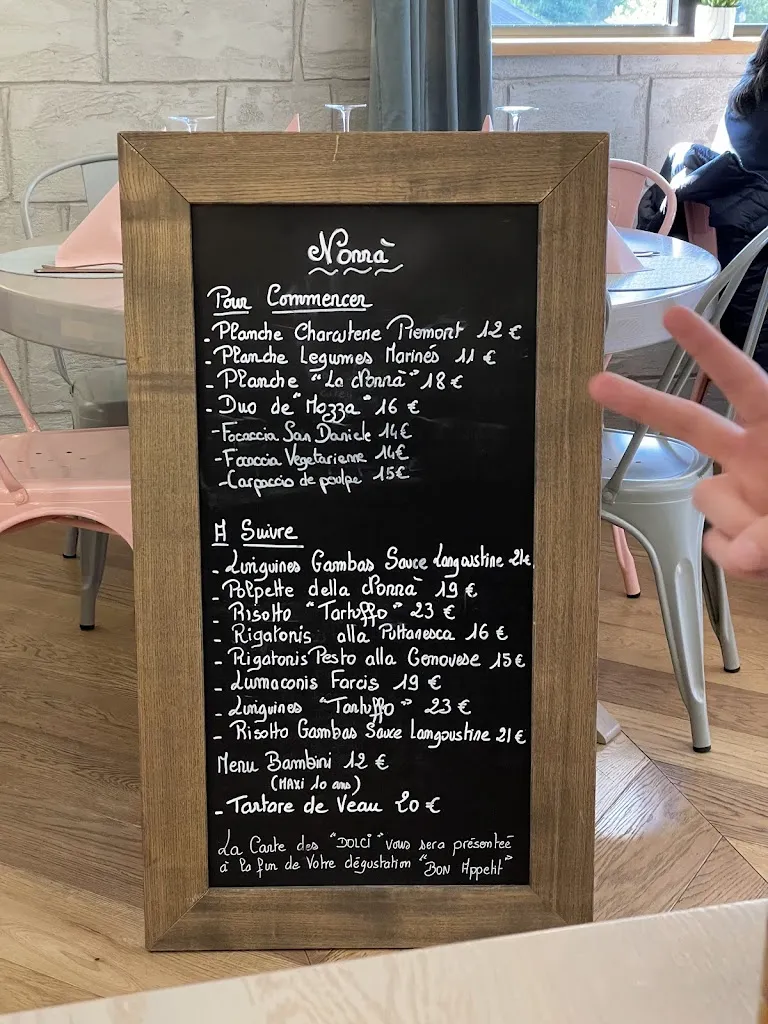 Nonnà
Pour Commencer
- Planche Charcuterie Piemont 12 €
- Planche Legumes Marinés 11 €
- Planche "La Nonnà" 18 €
- Duo de "Mozza" 16 €
- Focaccia San Daniele 14€
- Focaccia Vegetarienne 14€
- Carpaccio de poulpe 15€
A Suivre
- Linguines Gambas Sauce Langoustine 21€
- Polpette della Nonnà 19 €
- Risotto "Tartuffo" 23 €
- Rigatonis alla Puttanesca 16 €
- Rigatonis Pesto alla Genovese 15€
- Lumaconis Farcis 19 €
- Linguines "Tartuffo" 23 €
- Risotto Gambas Sauce Langoustine 21€
Menu Bambini 12 €
(MAXI 10 ans)
- Tartare de Veau 20 €
La Carte des "DOLCI" vous sera présenteé
à la fin de Votre dégustation "BON Appetit"